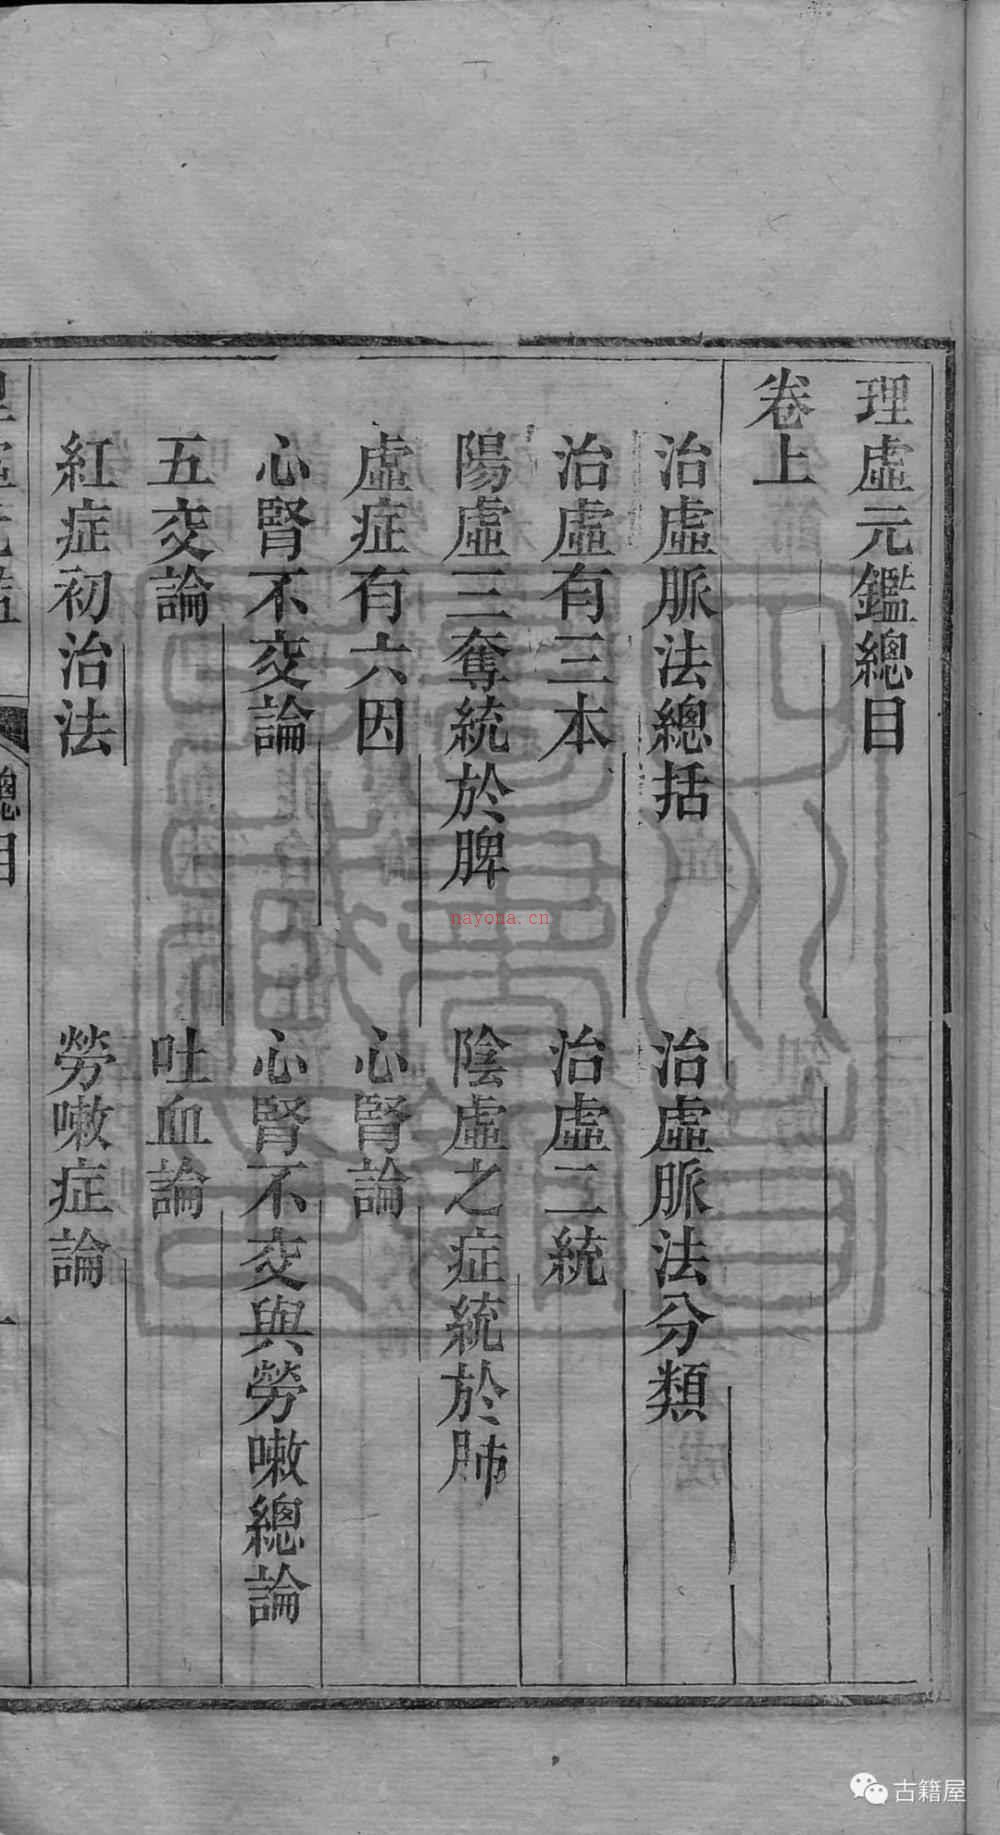 理虛元鑑總目
卷上
治虛脈法總括　治虛脈法分類
治虛有三本　治虛二統
陽虛三奪統於脾　陰虛之症統於肺
虛症有六因　心腎論
心腎不交論　心腎不交與勞嗽總論
五交論　吐血論
紅症初治法　勞嗽症論
總目
nayona.cn
古籍屋